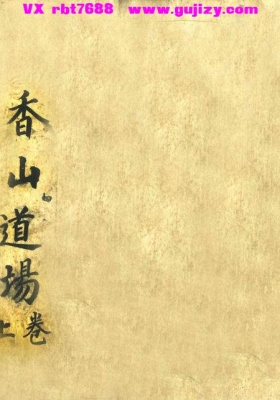 VX rbt7688 www.gujizy.com
香山道場
上卷